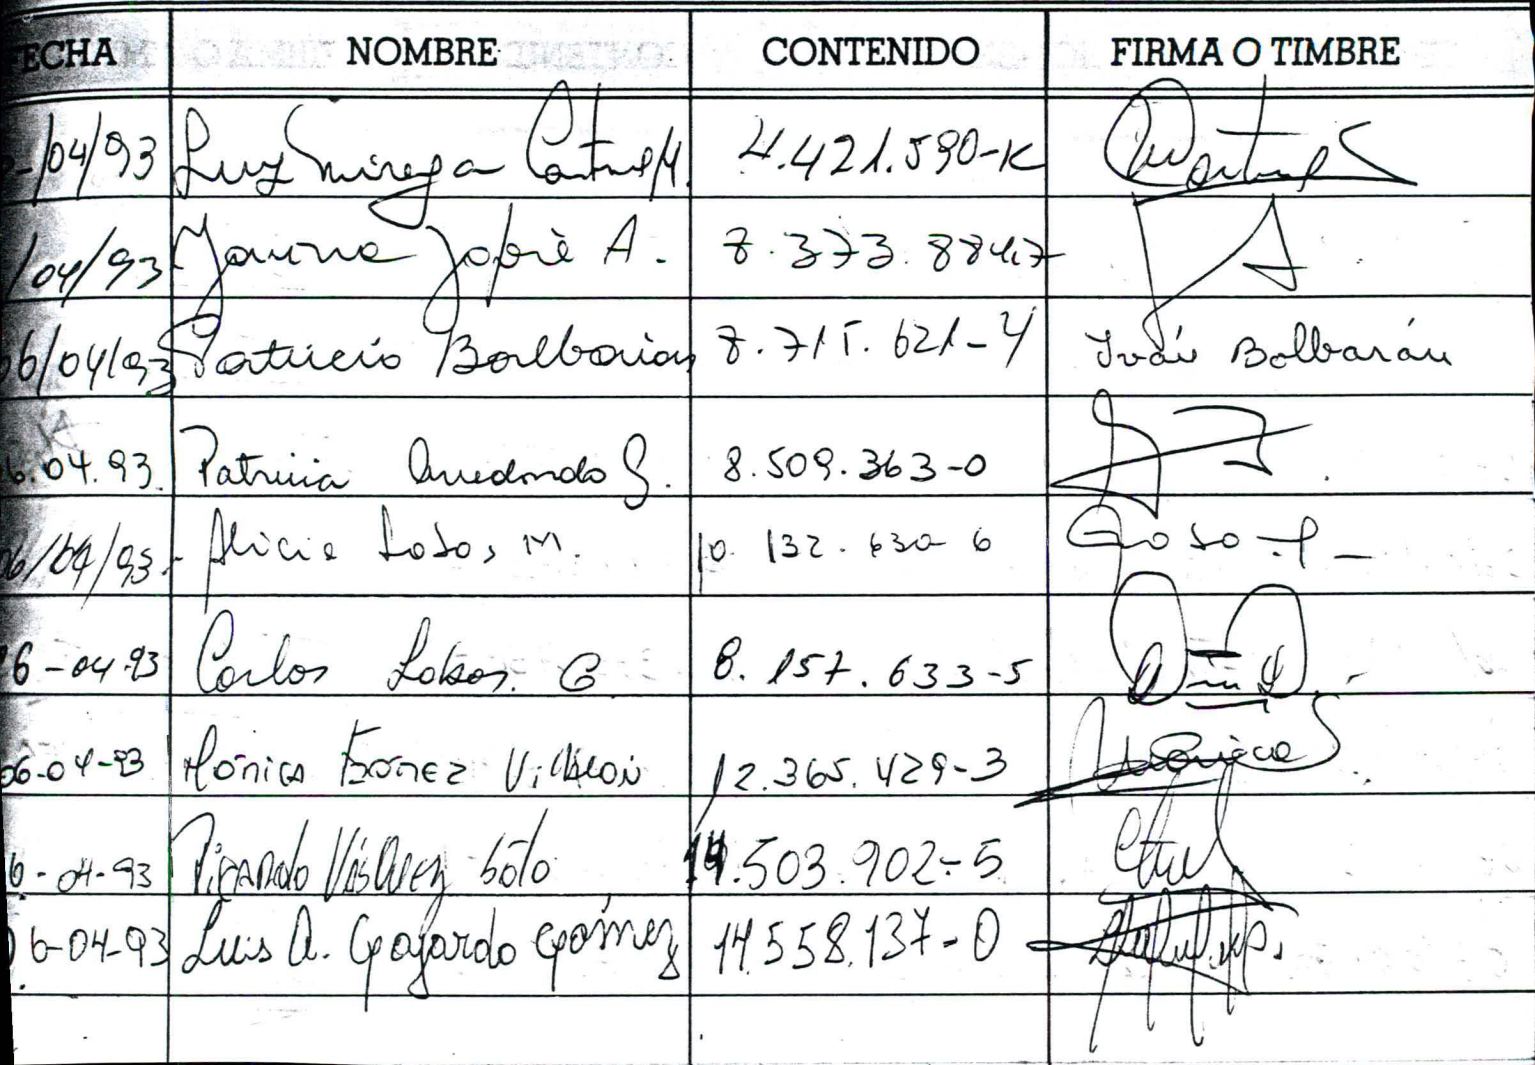 ECHA NOMBRE CONTENIDO FIRMA O TIMBRE
/04/93 Luz 4.421.590-K
/04/93 A. 8.373.884-7
06/04/93 Patricio Balbarian 8.715.621-4 Iván Balbarán
6.04.93. Patricia Arredondo S. 8.509.363-0
06/04/93. Alicia Lobos M. 10.132.630-6
6-04-93 Carlos Lobos. G 8.157.633-5
06-04-93 Mónica 12.365.429-3 Mónica
6-04-93 Soto 14.503.902-5
06-04-93 Luis A. Gajardo Gómez 14.558.137-0